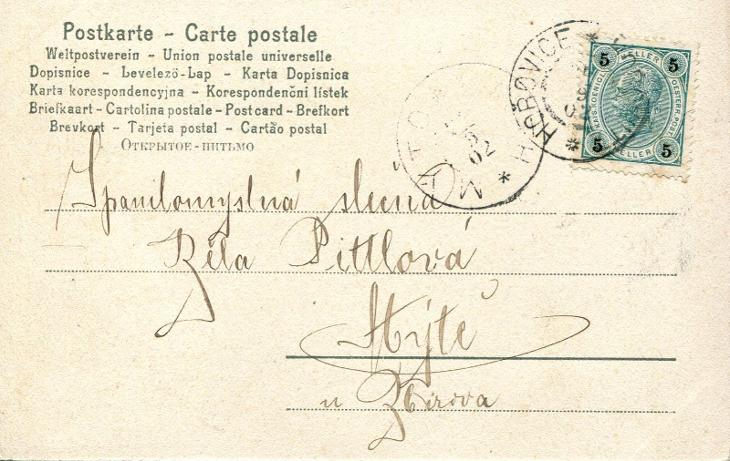 Postkarte - Carte postale
Weltpostverein - Union postale universelle
Dopisnice - Levelező-Lap - Karta Dopisnica
Karta korespondencyjna - Korespondenční lístek
Briefkaart - Cartolina postale - Post card - Brefkort
Brevkort - Tarjeta postal - Cartão postal
ОТКРЫТОЕ-ПИТЬМО
HOŘOVICE
5 HELLER 5
5 HELLER 5
02
Spanilomyslná slečná
Běla Pittlová
Mýtě
u Zbirova